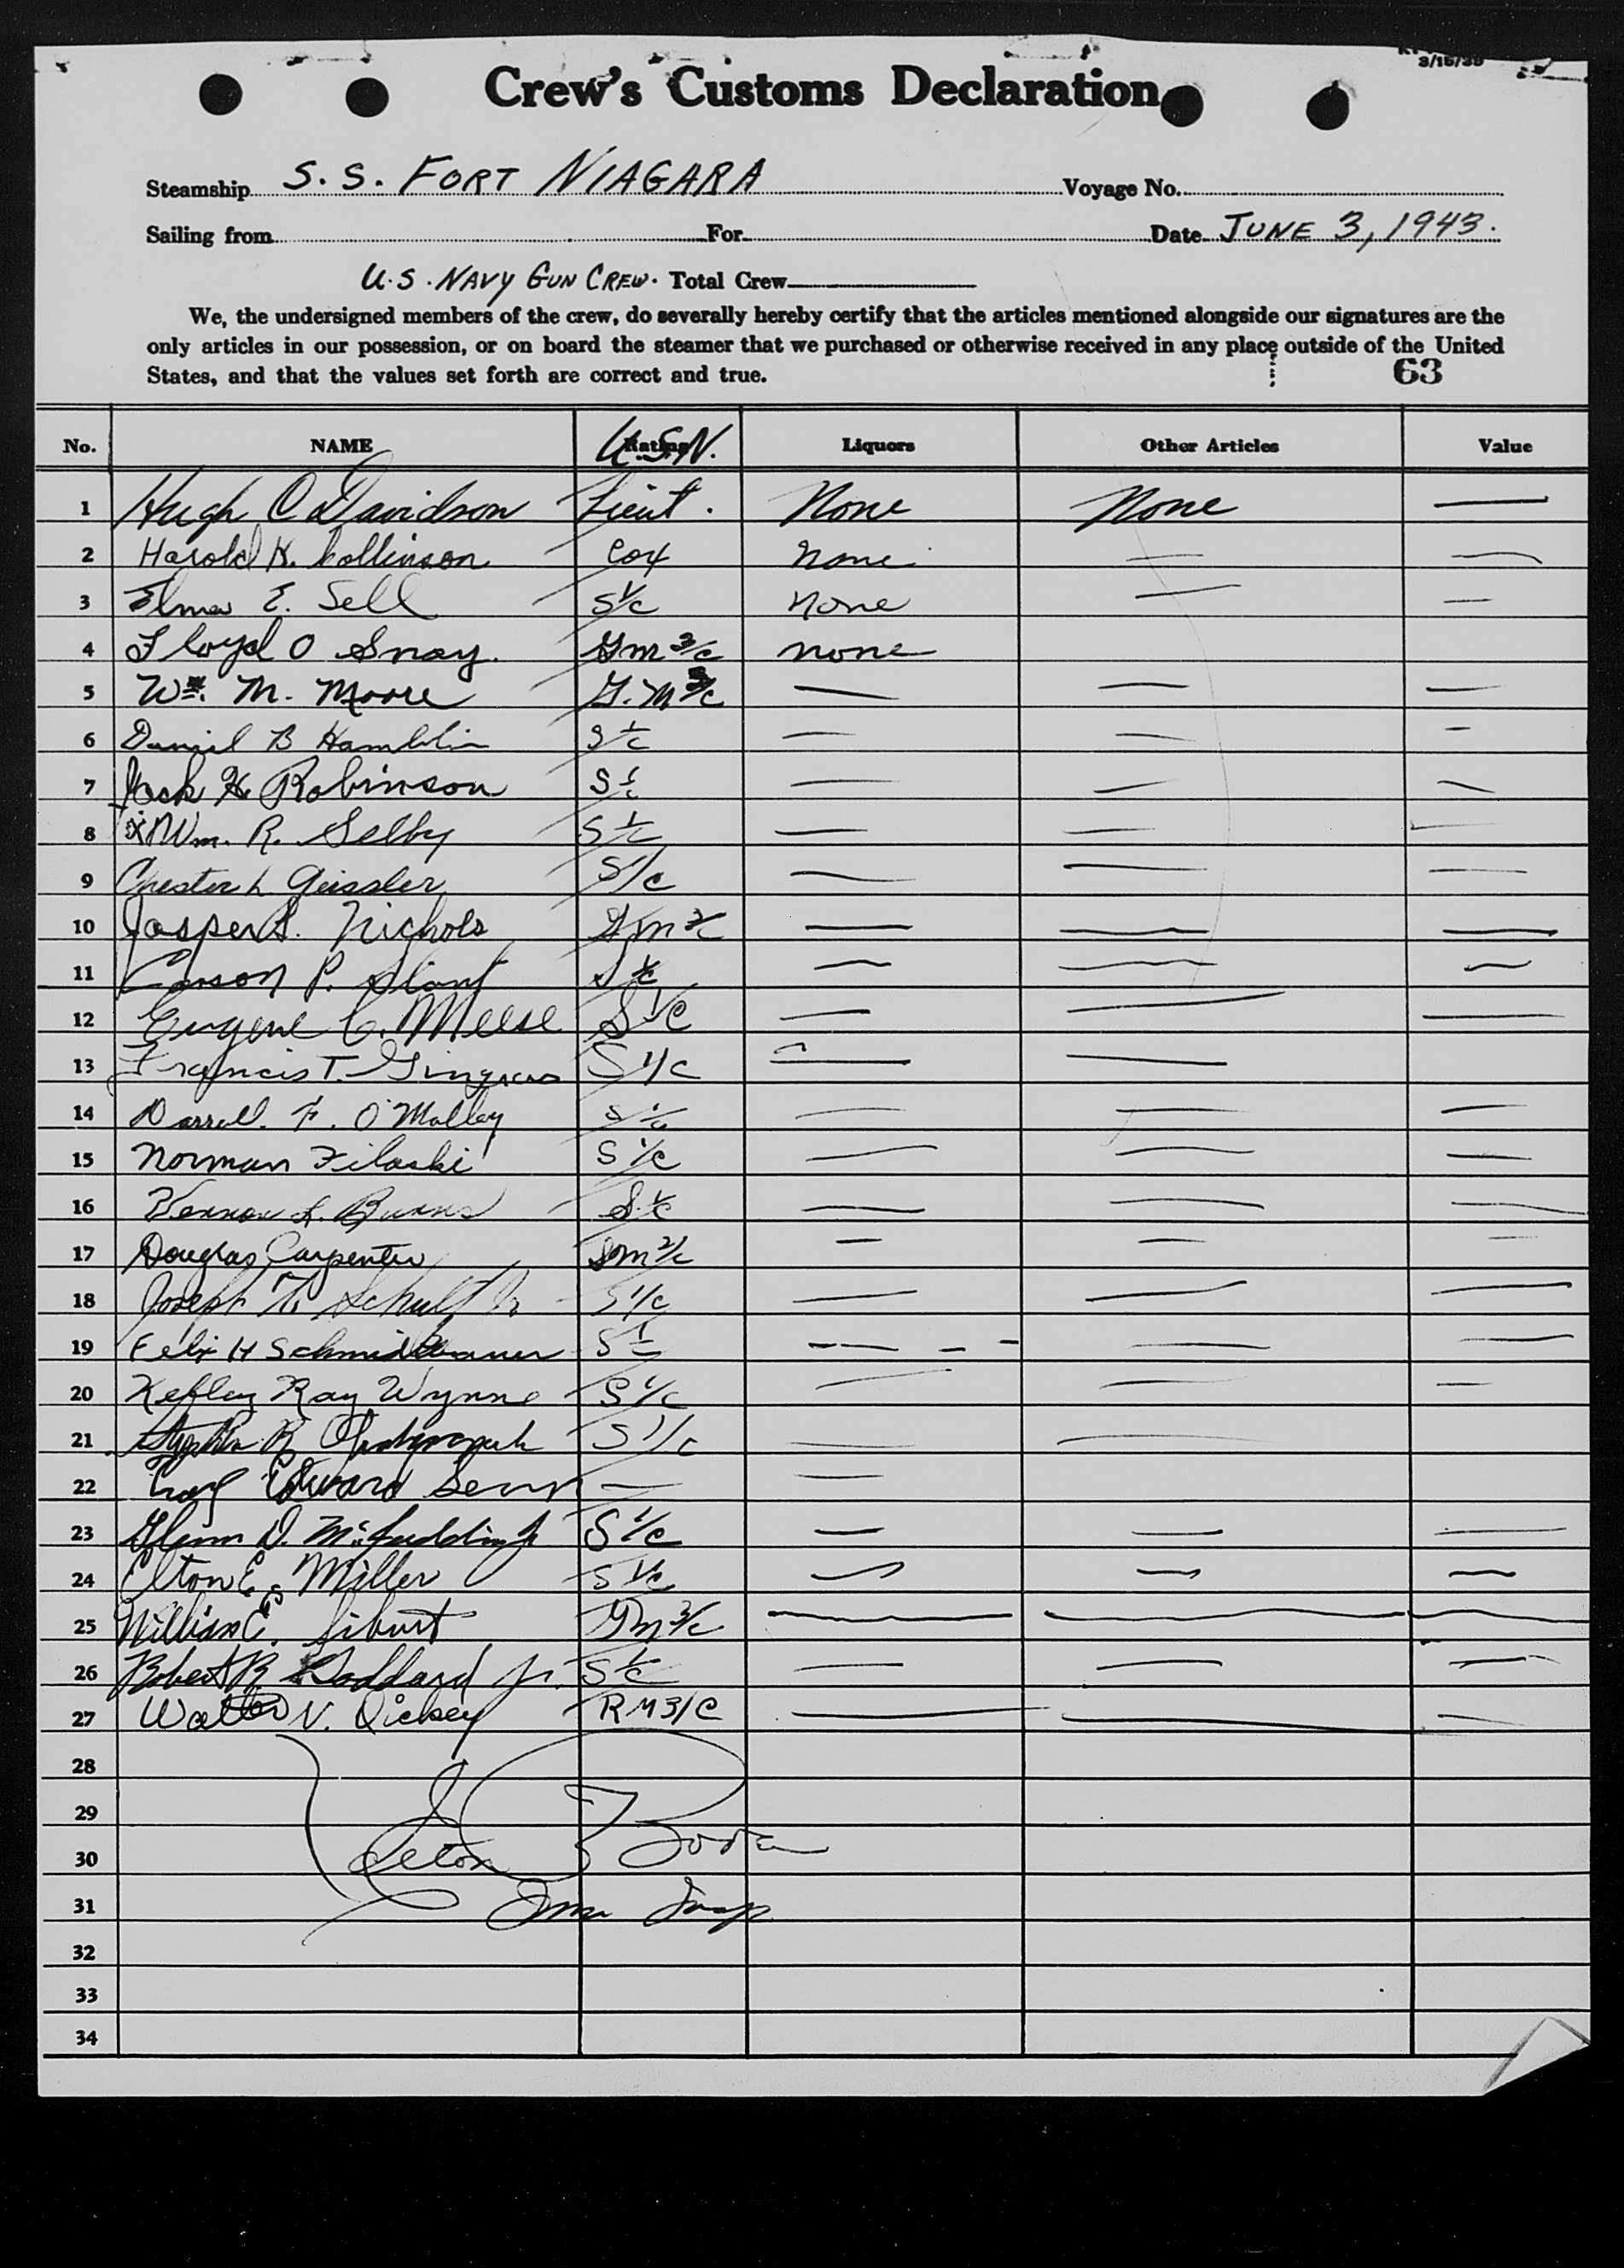 3/15/39
Crew's Customs Declaration
Steamship S.S. FORT NIAGARA Voyage No.
Sailing from For Date JUNE 3, 1943.
U.S. NAVY GUN CREW. Total Crew
We, the undersigned members of the crew, do severally hereby certify that the articles mentioned alongside our signatures are the
only articles in our possession, or on board the steamer that we purchased or otherwise received in any place outside of the United
States, and that the values set forth are correct and true. 63
No. NAME Rating U.S.N. Liquors Other Articles Value
1 Hugh C Davidson Lieut. None None —
2 Harold K. Collinson Cox none — —
3 Elmer E. Sell S 1/c none — —
4 Floyd O Snay. Gm 3/c none
5 Wm. M. Moore G.M 3/c — — —
6 Daniel B Hamblin S 1/c — — —
7 Jack H Robinson S 1/c — — —
8 Wm. R. Selby S 1/c — — —
9 Chester L Geissler S1/c — — —
10 Jasper S. Nichols Gm 3/c — — —
11 Carson P. S 1/c — — —
12 Eugene C. Meese S 1/c — — —
13 Francis T. Gingras S 1/c — —
14 Darrell. F. O'Malley S 1/c — — —
15 Norman Filaski S 1/c — — —
16 Vernon L. Burns S 1/c — — —
17 Douglas Carpenter 2/c — — —
18 Joseph Jr S 1/c — — —
19 Felix H Schmidbauer S 1/c — — —
20 Ray Wynne S 1/c — — —
21 Stephen S 1/c — —
22 Edward — —
23 Glenn D. S 1/c — — —
24 Elton E. Miller S 1/c — — —
25 William E. Sibert Gm 3/c — — —
26 Robert R. Goddard Jr. S 1/c — — —
27 Walter V. Dickey RM3/C — — —
28
29
30
31
32
33
34